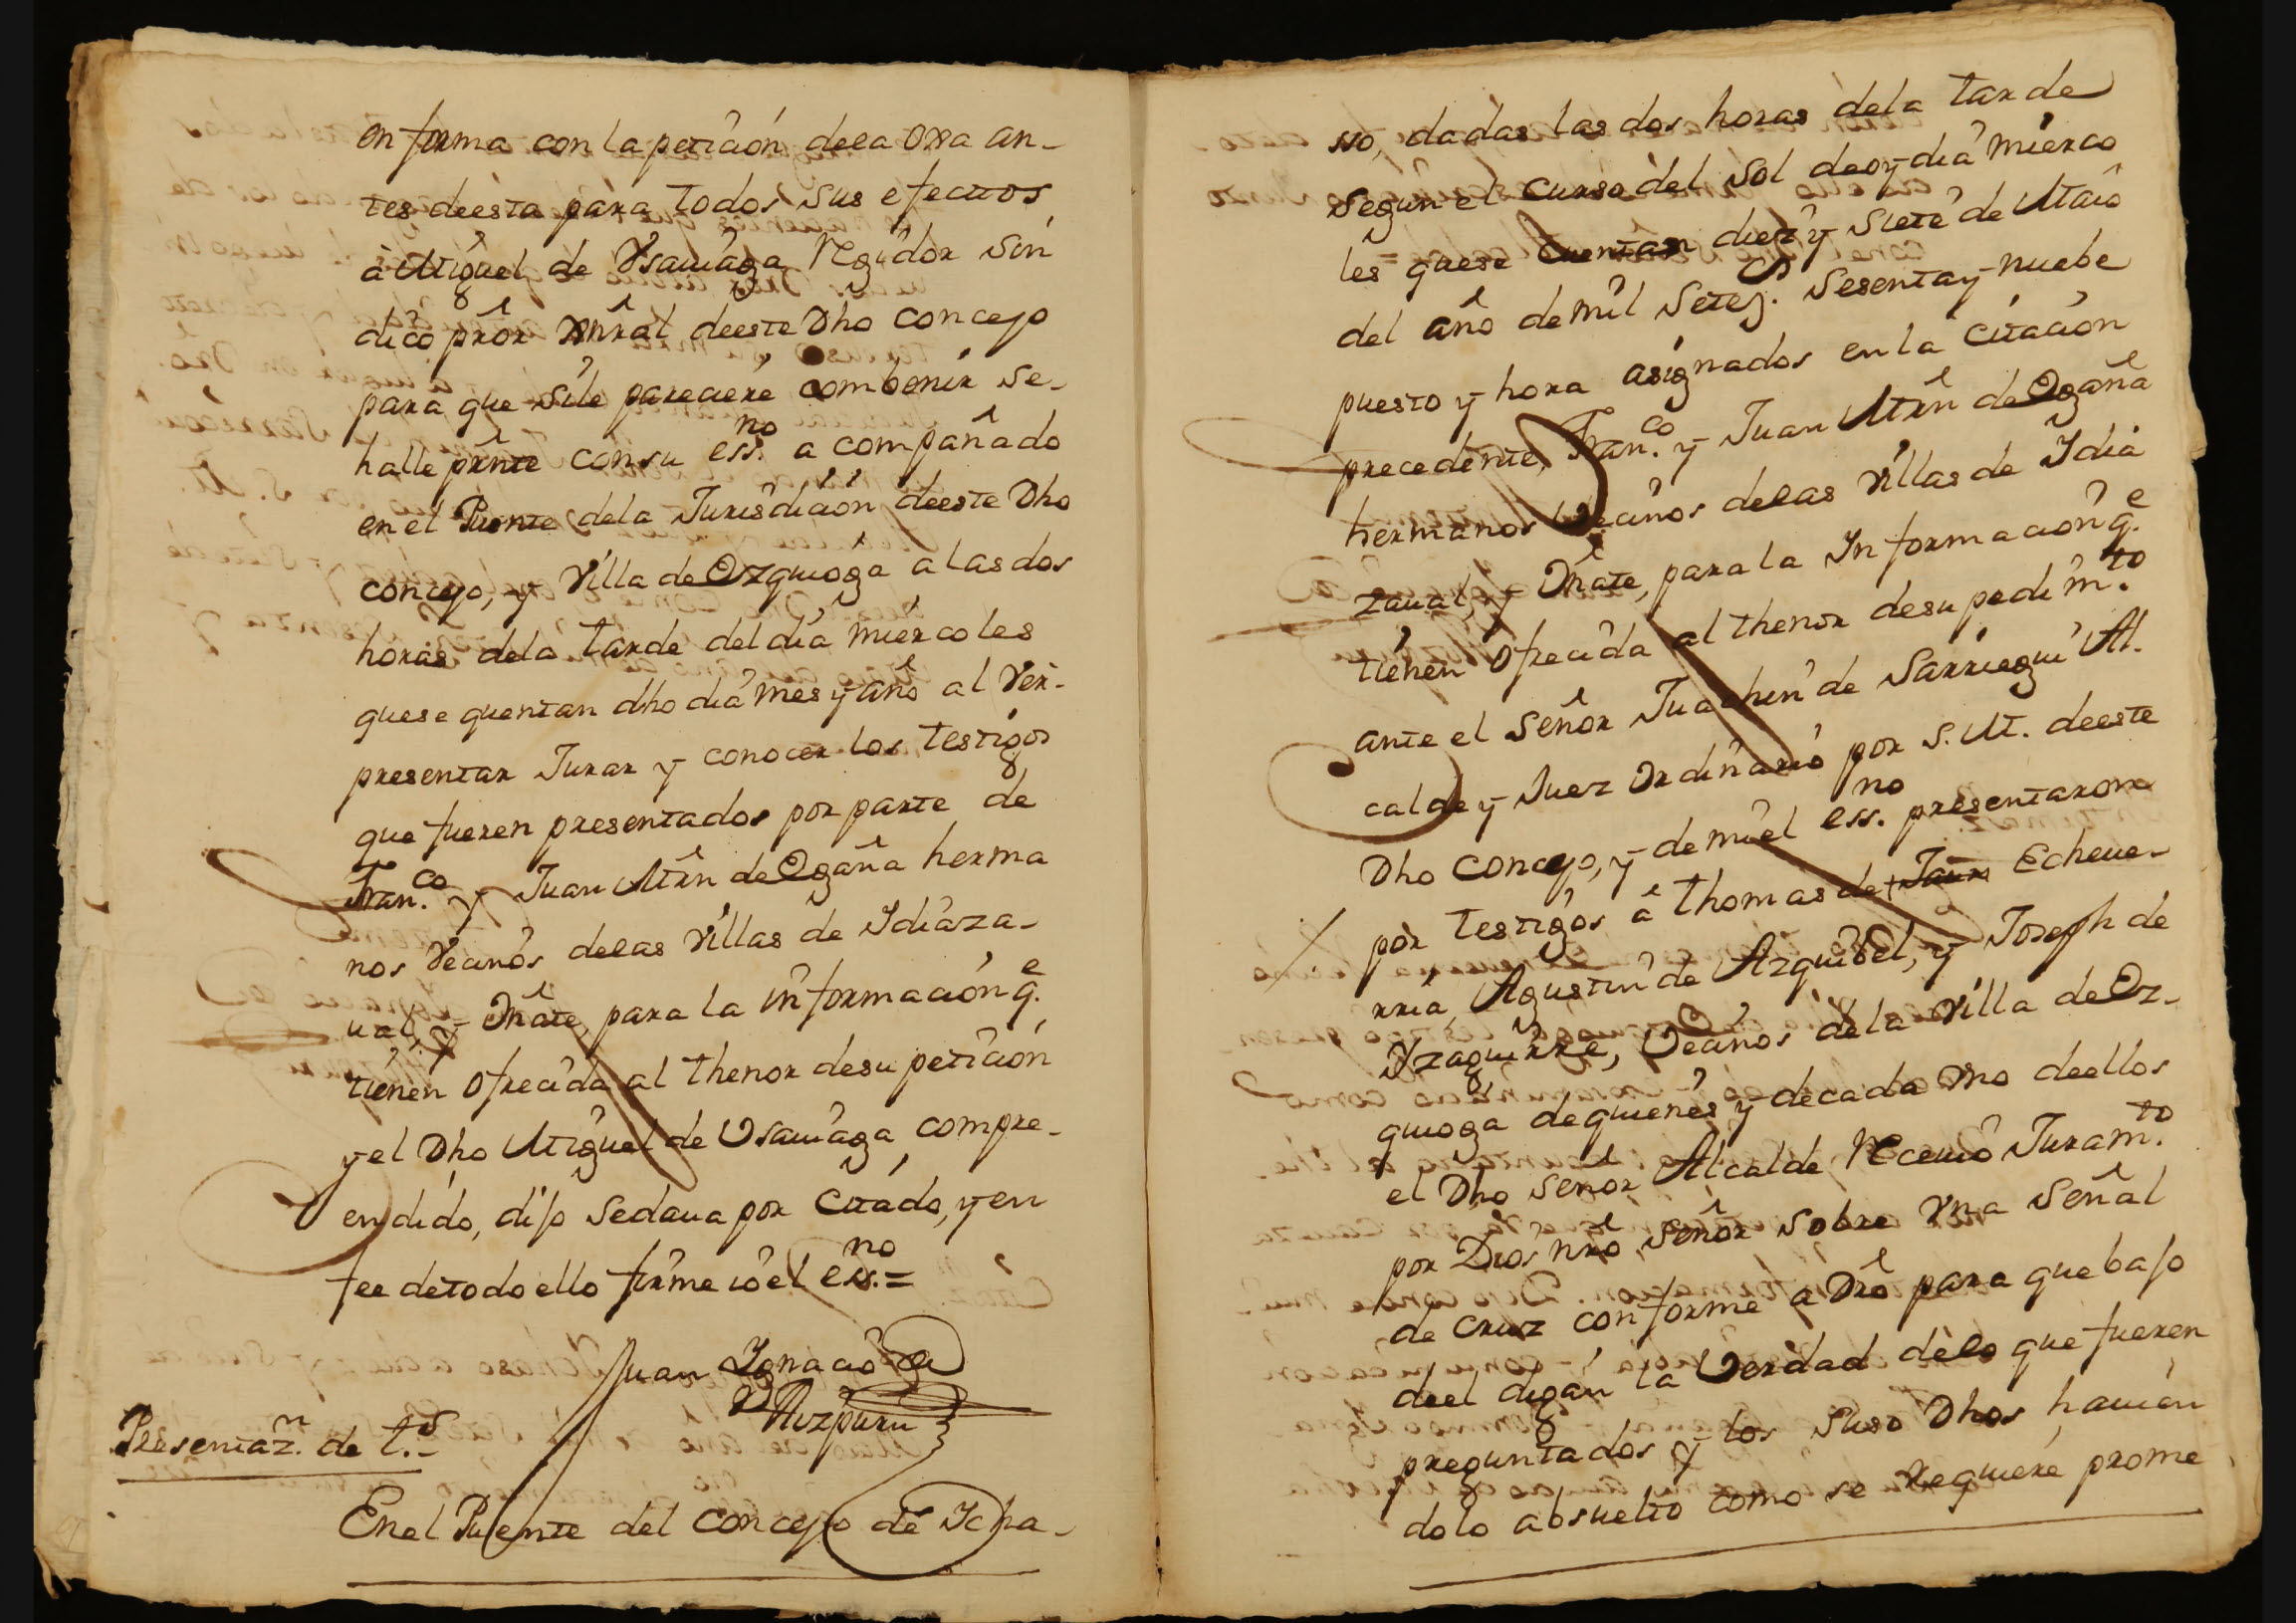 en forma con la peticion dela oxa an-
tes deesta para todos sus efectos
à Miguel de Vsauiaga Regidor Sin
dico prôr gnrâl deeste Dho concejo
para que sile pareciere combenir se-
halle prnte consu essno. acompañado
en el Puente dela Jurisdicion deeste Dho
concejo, y Villa de Ozquioga a las dos
horas dela tarde del dia miercoles
quese quentan dho dia mes y año al Ver-
presentar Jurar y conocer los testigos
que fueren presentados por parte de
Franco. y Juan Mrñ de Ogaña herma
nos Vecinos delas Villas de Idiaza-
ual, y Oñate, para la informacion qe.
tienen ofrecida al thenor desu peticion
y el Dho Miguel de Vsauiaga, compre-
endido, dijo sedaua por citado, y en
fee detodo ello firme ìo el essno.=
Juan Ignacio de
Aizpuru
Presentazn. de ts.
En el Puente del Concejo de Icha-
sso, dadas las dos horas dela tarde
segun el curso del Sol de oy dia mierco
les quese cuentan diez y siete de Maio
del año de mil Setez. Sesenta y nuebe
puesto y hora asignados en la citacion
precedente, Franco. y Juan Mrñ de Ogaña
hermanos Vecinos delas Villas de Idia
zaual, y Oñate, para la Informacion qe.
tienen ofrecida al thenor desu pedimto.
ante el Señor Juachin de Sarriegui Al-
calde y Juez Ordinario por S. M. deeste
Dho Concejo, y de mi el essno. presentaron
por testigos â Thomas de Echeue-
rria, Agustin de Azquibel, y Joseph de
Yzaguirre, Vecinos dela Villa de Oz-
quioga de quienes y de cada vno deellos
el Dho Señor Alcalde Receuio Juramto.
por Dios nrô Señor sobre vna Señal
de Cruz conforme a Drô para que bajo
deel digan la Verdad delo que fueren
preguntados y los suso Dhos, hauien
dolo absuelto como se requiere prome